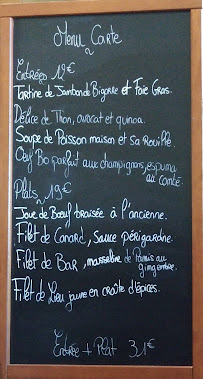 Menu Carte
Entrées 12€
Tartine de Jambon de Bigorre et Foie Gras.
Délice de Thon, avocat et quinoa.
Soupe de Poisson maison et sa Rouille.
Oeuf Bio parfait aux champignons, espuma
au Comté.
Plats ~ 19€
Joue de Boeuf braisée à l'ancienne.
Filet de Canard, Sauce périgourdine.
Filet de Bar, de Panais au
gingembre.
Filet de Lieu jaune en croûte d'épices.
Entrée + Plat 31€